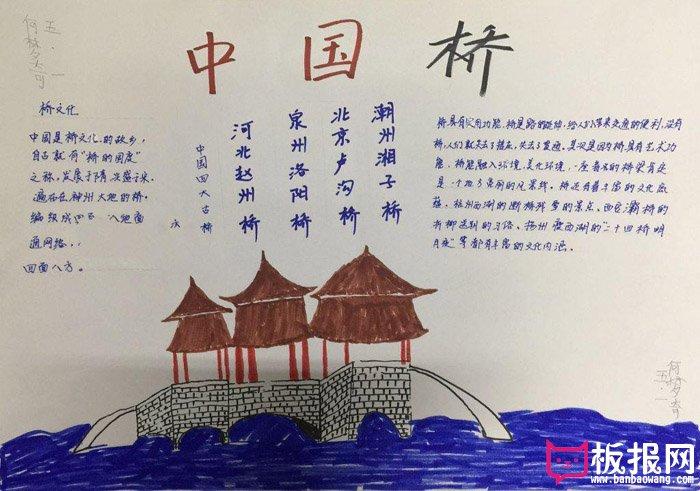 中国桥
五.一
何梦奇
桥文化
中国是桥文化的故乡,
自古就有"桥的国度"
之称,发展于隋兴盛于宋.
遍布在神州大地的桥,
编织成四 八地面
通网络,
四面八方。
潮州湘子桥
北京卢沟桥
泉州洛阳桥
河北赵州桥
中国四大古桥
桥具有实用功能,桥是路的延伸,给人们带来交通的便利,没有
桥,人们就失去了 失去了 通,其次是因为桥具有艺术功
能,桥能融入环境,美化环境,一座著名的桥梁肯定
是一个地方亮丽的风景线。桥还有着丰富的文化底
蕴,杭州西湖的断桥残雪的景点、西安灞桥的
折柳送别的习俗、扬州瘦西湖的"二十四桥明
月夜"等都有丰富的文化内涵。
何梦奇
五.一
板报网
www.banbaowang.com